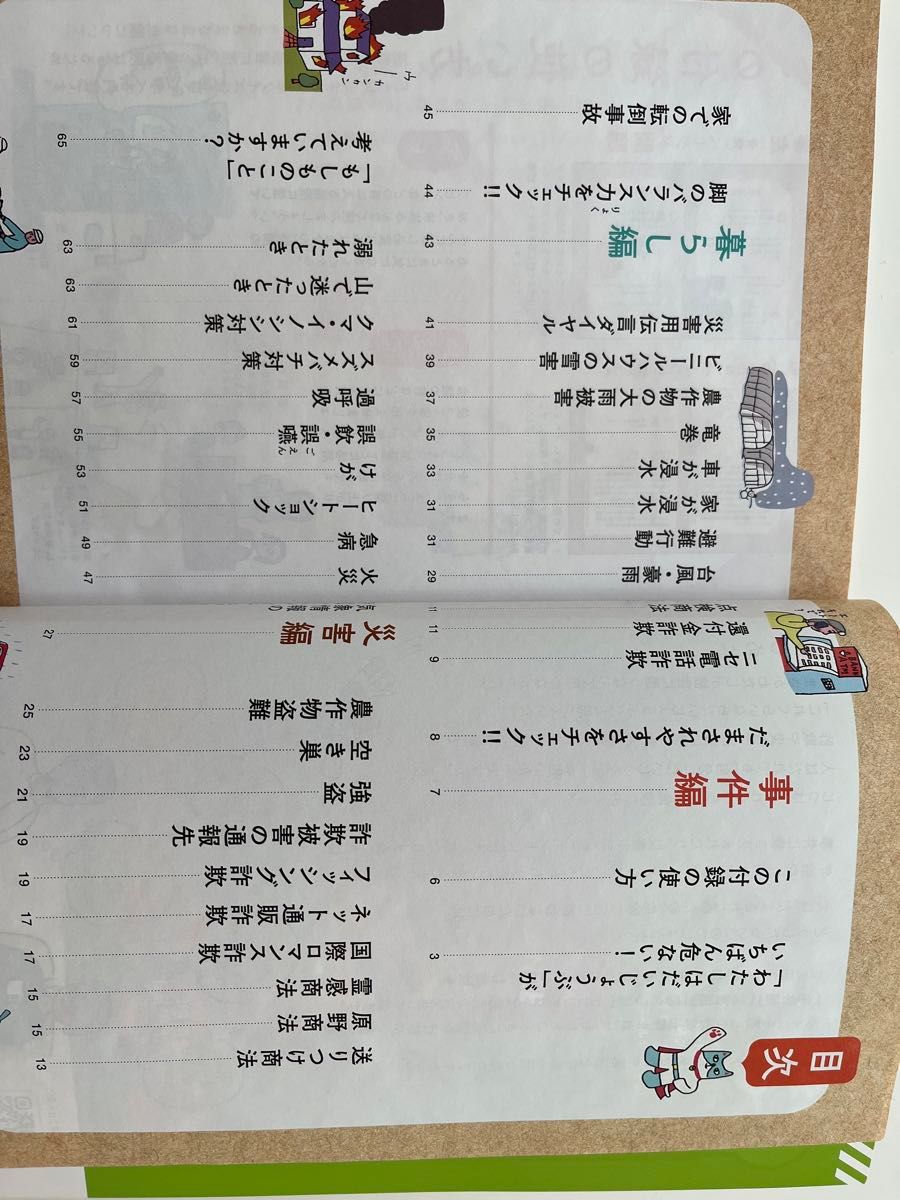 目次
「わたしはだいじょうぶ」が
いちばん危ない！ 3
この付録の使い方 6
事件編 7
だまされやすさをチェック!! 8
ニセ電話詐欺 9
還付金詐欺 11
点検商法 11
送りつけ商法 13
原野商法 15
霊感商法 15
国際ロマンス詐欺 17
ネット通販詐欺 17
フィッシング詐欺 19
詐欺被害の通報先 19
強盗 21
空き巣 23
農作物盗難 25
災害編 27
台風・豪雨 29
避難行動 31
家が浸水 31
車が浸水 33
竜巻 35
農作物の大雨被害 37
ビニールハウスの雪害 39
災害用伝言ダイヤル 41
暮らし編 43
脚のバランス力をチェック!! 44
りょく
家での転倒事故 45
火災 47
急病 49
ヒートショック 51
けが 53
誤飲・誤嚥 55
ごえん
過呼吸 57
スズメバチ対策 59
クマ・イノシシ対策 61
山で迷ったとき 63
溺れたとき 63
「もしものこと」
考えていますか？ 65
ウー
カンカン
BANK
ATM